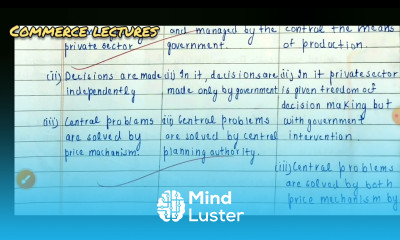 COMMERCE LECTURES
private sector
(ii) Decisions are made
independently
(iii) Central problems
are solved by
price mechanism.
and managed by the
government.
ii) In it, decisions are
made only by government
iii) Central problems
are solved by central
planning authority.
control the means
of production.
ii) In it private sector
is given freedom of
decision making but
with government
intervention.
(iii) Central problems
are solved by both
price mechanism by
Mind
Luster